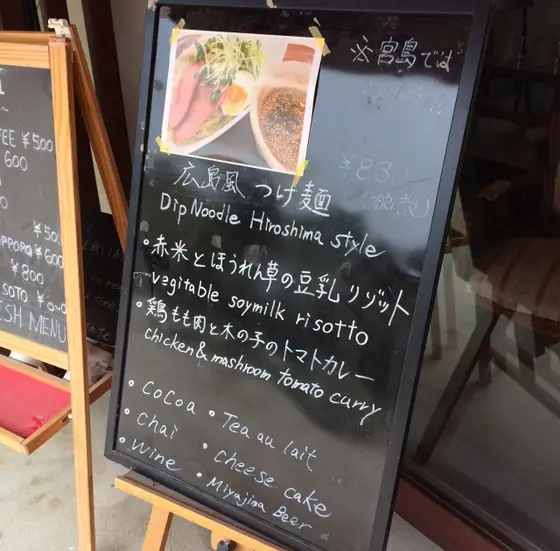 ※宮島では
広島風 つけ麺
Dip Noodle Hiroshima style
・赤米とほうれん草の豆乳リゾット
vegitable soymilk risotto
・鶏もも肉と木の子のトマトカレー
chicken & mashroom tomato curry
・CoCoa ・Tea au lait
・Chai ・cheese cake
・Wine ・Miyajima Beer
FEE ¥500
600
¥500
PPORO ¥600
¥800
SOTO
SH MENU